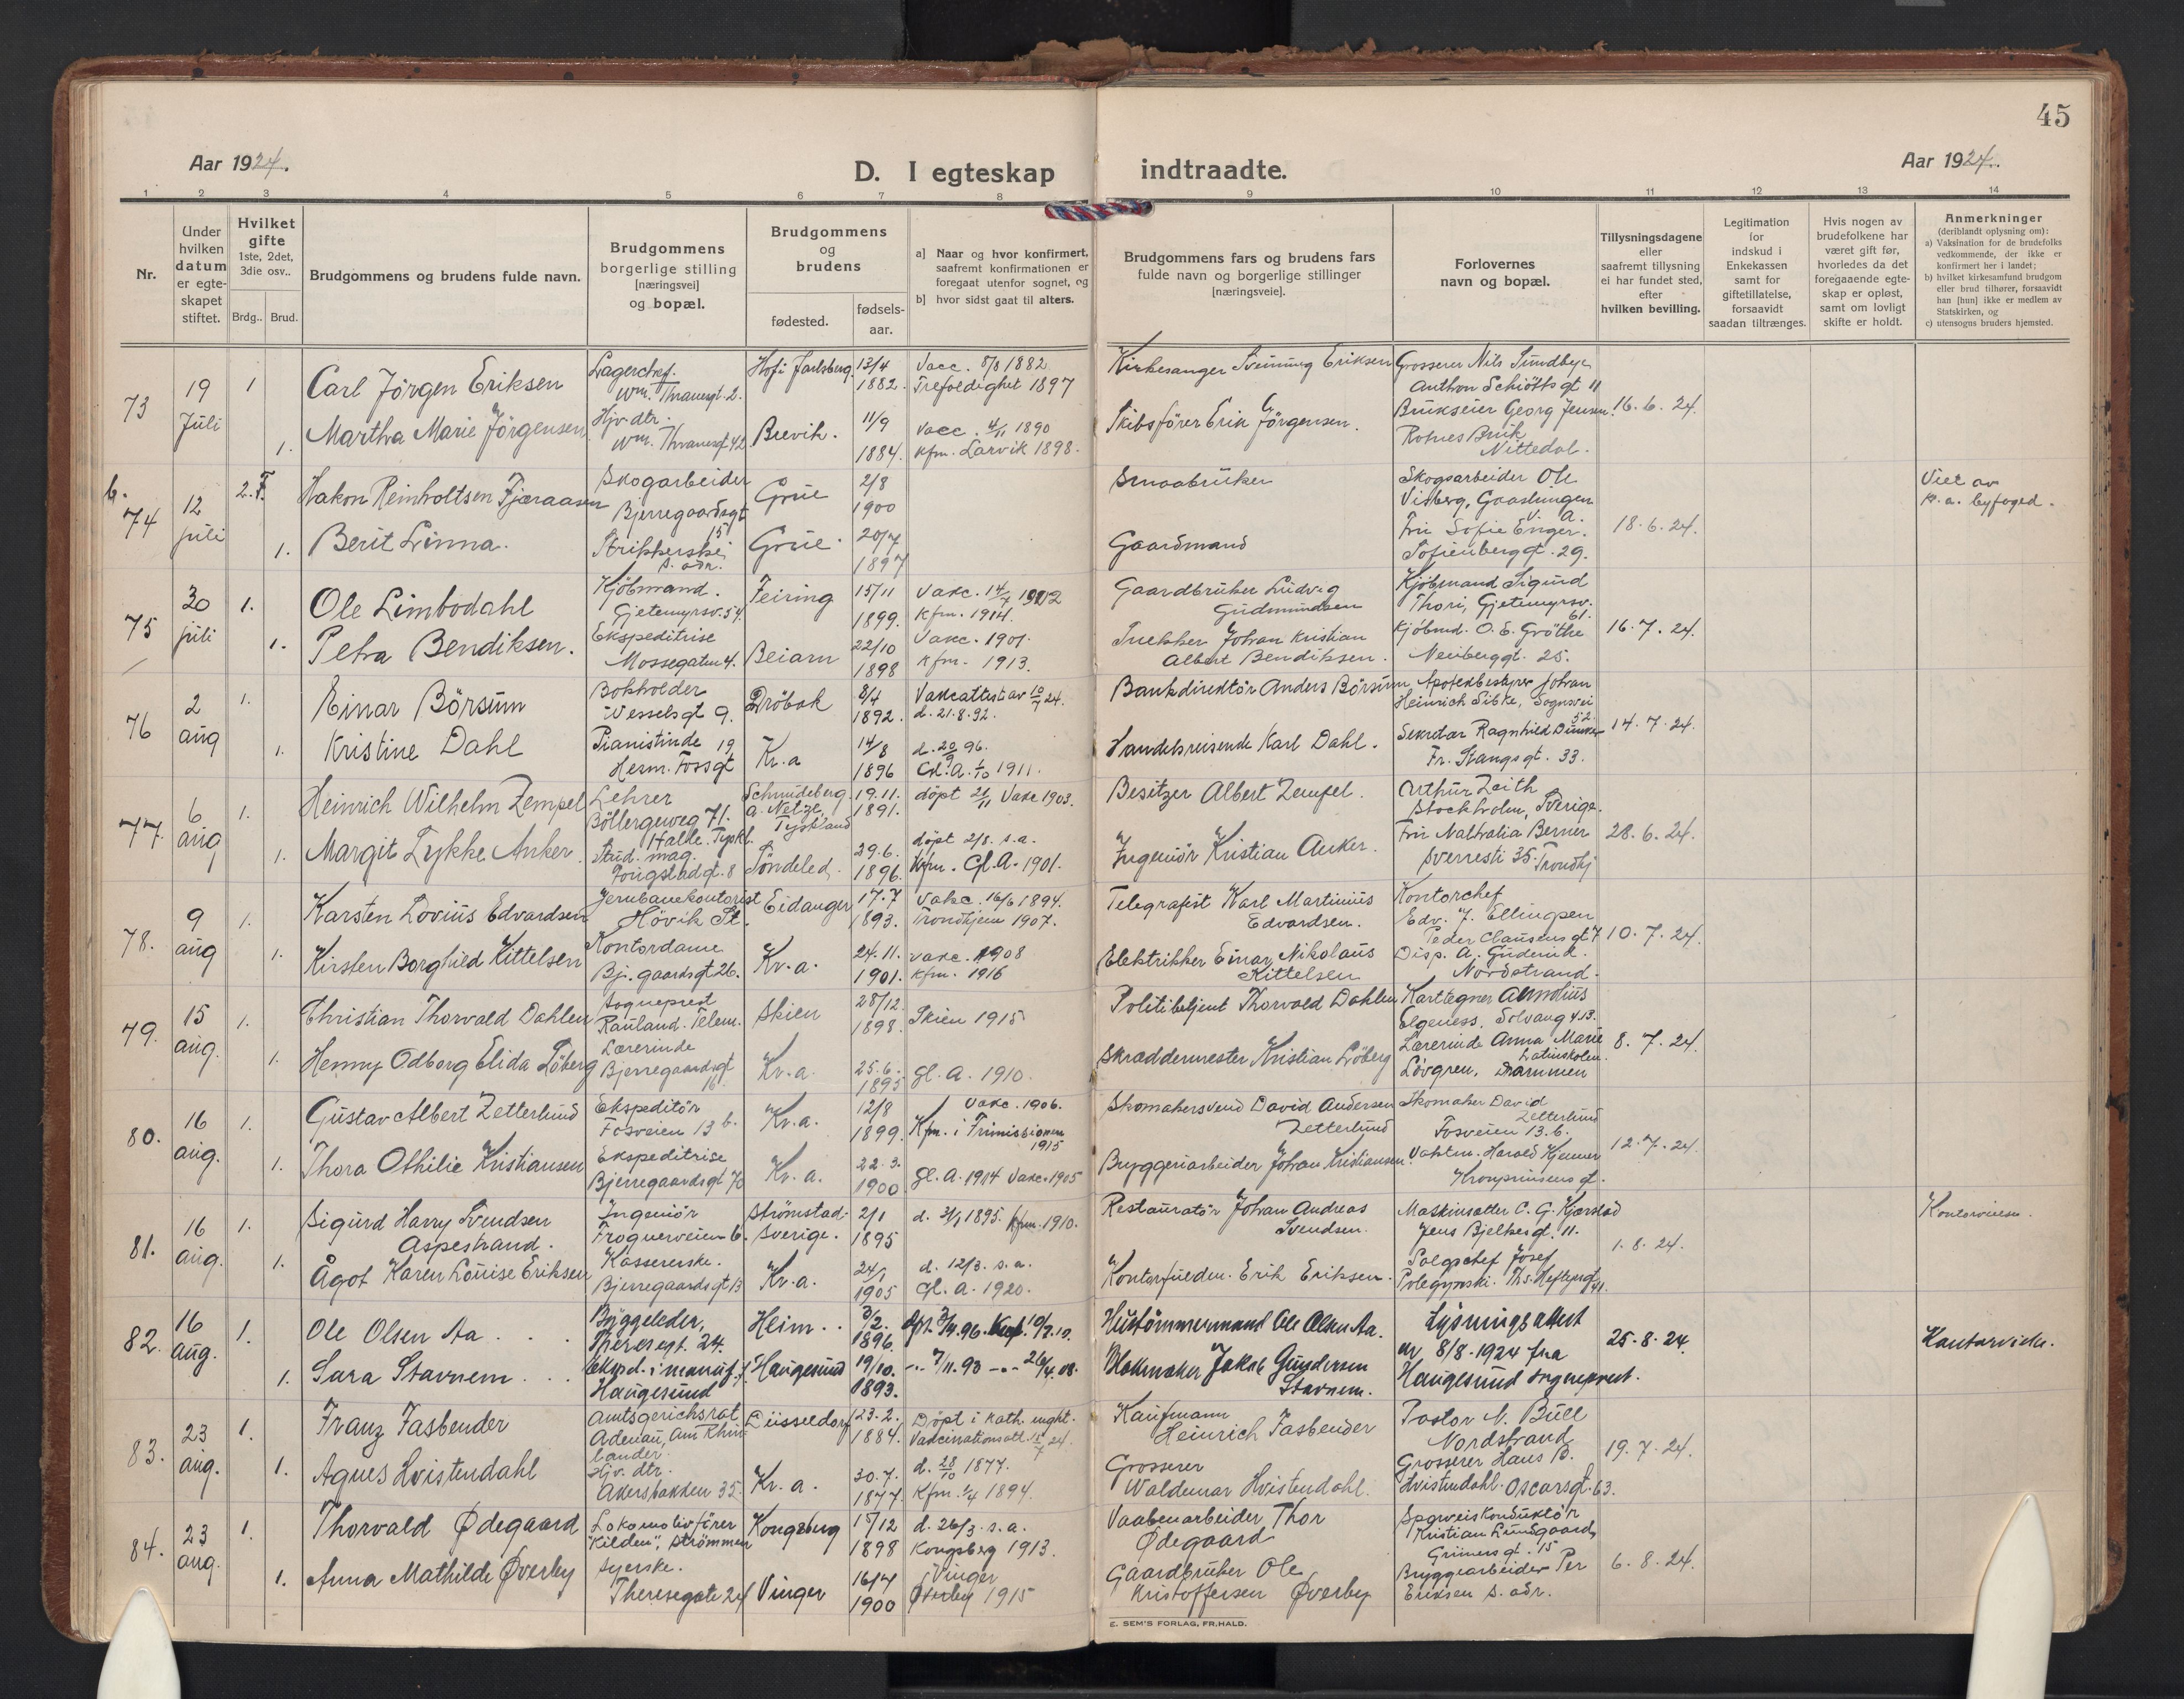 45
Aar 1924.
D. I egteskap indtraadte.
Aar 1924.
1 2 3 4 5 6 7 8 9 10 11 12 13 14
Nr.
Under hvilken datum er egteskapet stiftet.
Hvilket gifte 1ste, 2det, 3die osv..
Brdg.. Brud.
Brudgommens og brudens fulde navn.
Brudgommens borgerlige stilling [næringsvei] og bopæl.
Brudgommens og brudens
fødested.
fødselsaar.
a] Naar og hvor konfirmert, saafremt konfirmationen er foregaat utenfor sognet, og
b] hvor sidst gaat til alters.
Brudgommens fars og brudens fars fulde navn og borgerlige stillinger [næringsveie].
Forlovernes navn og bopæl.
Tillysningsdagene eller saafremt tillysning ei har fundet sted, efter hvilken bevilling.
Legitimation for indskud i Enkekassen samt for giftetillatelse, forsaavidt saadan tiltrænges.
Hvis nogen av brudefolkene har været gift før, hvorledes da det foregaaende egteskap er opløst, samt om lovligt skifte er holdt.
Anmerkninger (deriblandt oplysning om):
a) Vaksination for de brudefolks vedkommende, der ikke er konfirmert her i landet;
b) hvilket kirkesamfund brudgom eller brud tilhører, forsaavidt han [hun] ikke er medlem av Statskirken, og
c) utensogns bruders hjemsted.
73 19 Juli 1 Carl Jörgen Eriksen Lagerchef. Wm. Thranesgt. 2. Hof i Jarlsberg 13/4 1882. Vacc. 8/8 1882 Trefoldighet 1897
Kirkesanger Svenning Eriksen Grosserer Nils Sundbye Anthon Schiøtts gt 11
1. Martha Marie Jörgensen Hjv. dtr. Wm. Thranesgt 42 Brevik. 11/9 1884. Vacc. 4/11 1890 Kfm. Larvik 1898.
Skibsfører Erik Jörgensen. Brukseier Georg Jensen Rotnes Bruk Nittedal. 16.6.24.
74 12 juli 2.F. Hakon Reinholtsen Fjæraaen Skogarbeider Bjerregaardsgt 15 Grue 2/8 1900
Smaabruker Skogsarbeider Ole Visberg, Gaaslungen V. A. Viet av k.a. byfoged.
1. Berit Linna. Strikkerske s. adr. Grue. 20/7 1897
Gaardmand Fru Sofie Enger. Sofienberggt. 29. 18.6.24.
75 30 juli 1. Ole Limbodahl Kjöbmand. Gjetemyrsv. 54. Feiring 15/11 1899. Vakc. 14/7 1902 Kfm. 1914.
Gaardbruker Ludvig Gudmundsen Kjöbmand Sigurd Thori, Gjetemyrsv. 61.
1. Petra Bendiksen. Ekspeditrise Mossegaten 4. Beiarn 22/10 1898 Vakc. 1901. Kfm. 1913.
Snekker Johan Kristian Albert Bendiksen. Kjöbmd. O. E. Gröthe Neuberggt. 25. 16.7.24.
76 2 aug 1. Einar Börsum Bokholder Wesselsgt 9. Dröbak 8/4 1892. Vakcattest av 10/7 24. d. 21.8.92.
Bankdirektör Anders Börsum Apotekbestyrer Johan Heinrich Sibke, Sognsvei 52.
1. Kristine Dahl Pianistinde Herm. Fossgt 19 Kr.a 14/8 1896 d. 20/9 96. Gl. A. 1/10 1911.
Handelsreisende Karl Dahl. Sekretær Ragnhild Duncker Fr. Stangsgt. 33. 14.7.24.
77. 6 aug 1. Heinrich Wilhelm Zempel Lehrer Böllergeweg 71. Halle. Tyskl. Schneideberg a. Netze, Tyskland 19.11. 1891. döpt 21/11 Vakc 1903.
Besitzer Albert Zempel. Arthur Zeith Stockholm, Sverige.
1. Margit Lykke Anker. Stud. mag. Söndeled. 29.6. 1896. döpt 2/8. s.a. Kfm. Gl. A. 1901.
Ingeniör Kristian Anker. Fru Nathalia Berner Sverresti 35. Trondhj 28.6.24.
78. 9 aug 1. Karsten Lovius Edvardsen Jernbanekontorist Hövik St. Eidanger 17.7 1893. Vakc. 16/6 1894. Trondhjem 1907.
Telegrafist Karl Martinius Edvardsen. Kontorchef Edv. J. Ellingsen Peder Clausensgt 7
1. Kirsten Borghild Kittelsen Kontordame Bj. gaardsgt 26. Kr.a. 24.11. 1901. vakc. 1908 kfm. 1916
Elektrikker Einar Nikolaus Kittelsen Disp. A. Guderud. Nordstrand. 10.7.24.
79. 15 aug. 1. Christian Thorvald Dahlen Sogneprest Rauland. Telem. Skien 28/12 1898. Skien 1915
Politibetjent Thorvald Dahlen Karttegner Arnolius Elgeness, Solvang 413.
1. Henny Odborg Elida Löberg Lærerinde Bjerregaardsgt 16. Kr.a. 25.6. 1895 Gl. A. 1910.
Skræddermester Kristian Löberg Lærerinde Anna Marie Lövgren, Latinskolen. Drammen 8.7.24.
80. 16 aug. 1. Gustav Albert Zetterlund Ekspeditör Fosveien 13 b. Kr.a. 12/8 1899. Vakc. 1906. Kfm. i Frimissionen 1915
Skomakersvend David Andersen Zetterlund Skomaker David Zetterlund Fosveien 13.b.
1. Thora Othilie Kristiansen Ekspeditrise Bjerregaardsgt 70 Kr.a. 22.3. 1900 Gl. A. 1914 Vakc. 1905
Bryggeriarbeider Johan Kristiansen. Vaktm. Harald Kjenner Kronprinsensgt. 12.7.24.
81. 16 aug. 1. Sigurd Harry Svendsen Aspestrand. Ingeniör Frognerveien 6. Strömstad. Sverige. 2/1 1895 d. 31/1 1895. Kfm. 1910.
Restauratör Johan Andreas Svendsen. Maskinsetter C. G. Kjærstad Jens Bjelkesgt. 11.
1. Ågot Karen Louise Eriksen Kassererske. Bjerregaardsgt 13 Kr.a. 24/1 1905 d. 12/3. s.a. Gl. A. 1920.
Kontorfuldm. Erik Eriksen. Salgschef Josef 1.8.24.
82. 16 aug. 1. Ole Olsen Aa Byggeleder, Theresegt. 24. Heim 3/2. 1896. Döpt. 3/4.96. Konf. 10/2.10.
Hustömmermand Ole Olsen Aa. Lysningsattest av 8/8-1924 fra Haugesund sogneprest. 25.8.24.
1. Sara Stavnem Eksped. i manuf. f. Haugesund Haugesund 19/10. 1893. -"- 7/11.93 -"- 26/4.08.
Blokmaker Jakob Gundersen Stavnem.
83. 23 aug. 1. Franz Fasbender Amtsgerichsrat Adenau, Am Rheinlander Düsseldorf 23.2. 1884. Döpt i kath. might. Vakcinationsatt. 15/7 24.
Kaufmann Heinrich Fasbender Pastor N. Bull Nordstrand
1. Agnes Hvistendahl Hjv. dtr. Akersbakken 35 Kr.a. 30.7. 1877. d. 28/10 1877. Kfm. 1/4 1894.
Grosserer Waldemar Hvistendahl. Grosserer Hans B. Hvistendahl. Oscarsgt. 63. 19.7.24.
84. 23 aug. 1. Thorvald Ødegaard Lokomotivförer "Kilden", Strömmen Kongsberg 15/12 1898 d. 26/3. s.a. Kongsberg 1913.
Vaabenarbeider Thor Ødegaard Sporveiskonduktör Kristian Lundgaard, Grünersgt. 15
1. Anna Mathilde Øverby Syerske. Theresegate 24 Vinger 16/4 1900 Vinger 1915
Gaardbruker Ole Kristoffersen Øverby Bryggearbeider Per Eriksen s. adr. 6.8.24.
E. SEM'S FORLAG, FR.HALD.